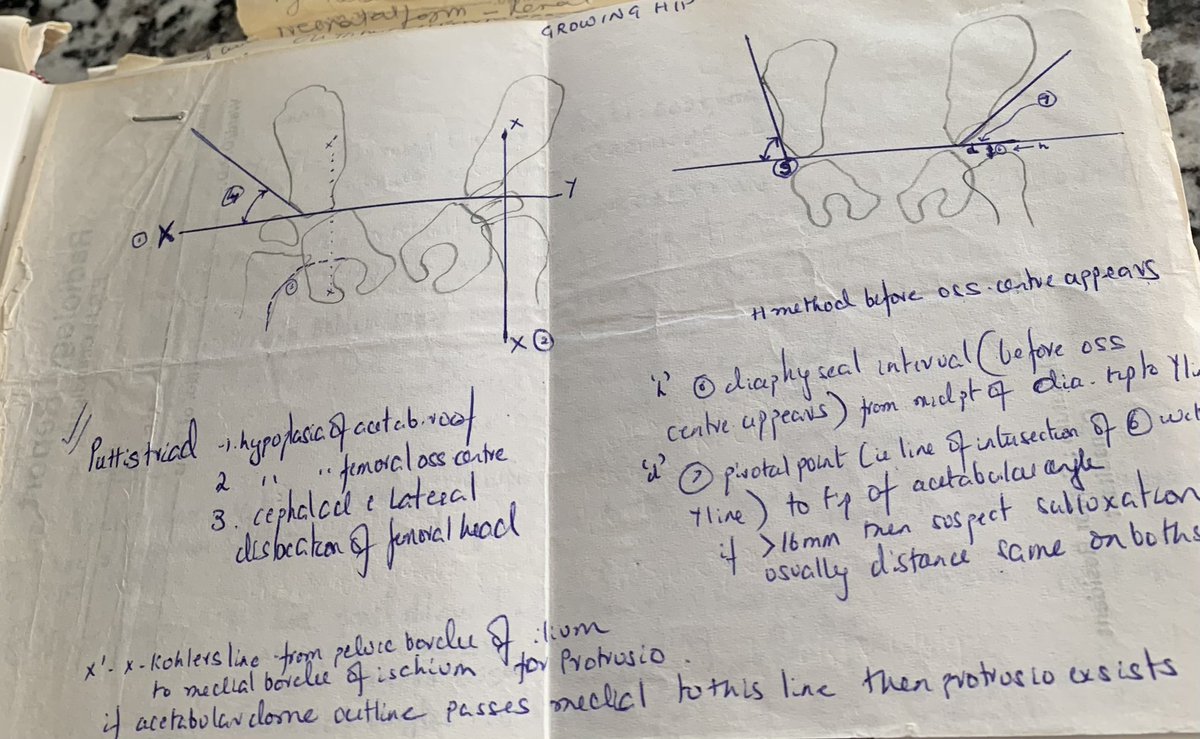 GROWING HIP
① X
Y
④
③
X
X ②
x
x
⑤
⑦
d
h
H method before oss. centre appears
'h' ⑥ diaphyseal interval (before oss
centre appears) from midpt of dia. up to Y
'd' ⑦ pivotal point (ie line of intersection of ⑥ with
Y line) to of acetabular angle
if >16mm then suspect subluxation
usually distance same on both s
Puttis triad - 1. hypoplasia of acetab. roof
2 " " femoral oss centre
3. cephalad & Lateral
dislocation of femoral head
x'- x - Kohlers line from pelvic border of ilium
to medial border of ischium for Protrusio.
if acetabular dome outline passes medial to this line then protrusio exsists